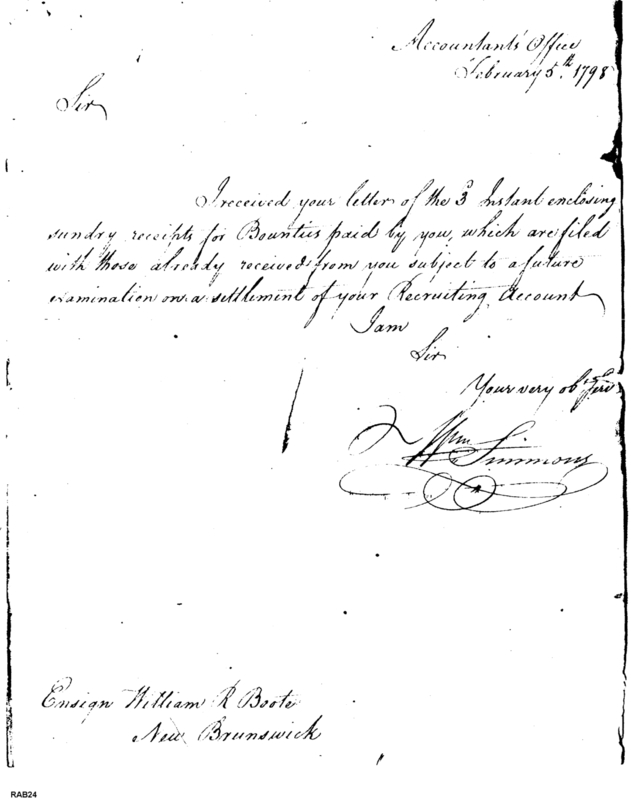 Accountants' Office
February 5th. 1798
Sir
I received your letter of the 3d Instant enclosing
sundry receipts for Bounties paid by you, which are filed
with those already received from you subject to a future
examination on a settlement of your Recruiting Account
I am
Sir
Your very obt. Serv
Wm Simmons
Ensign William R Boote
New Brunswick
RAB24